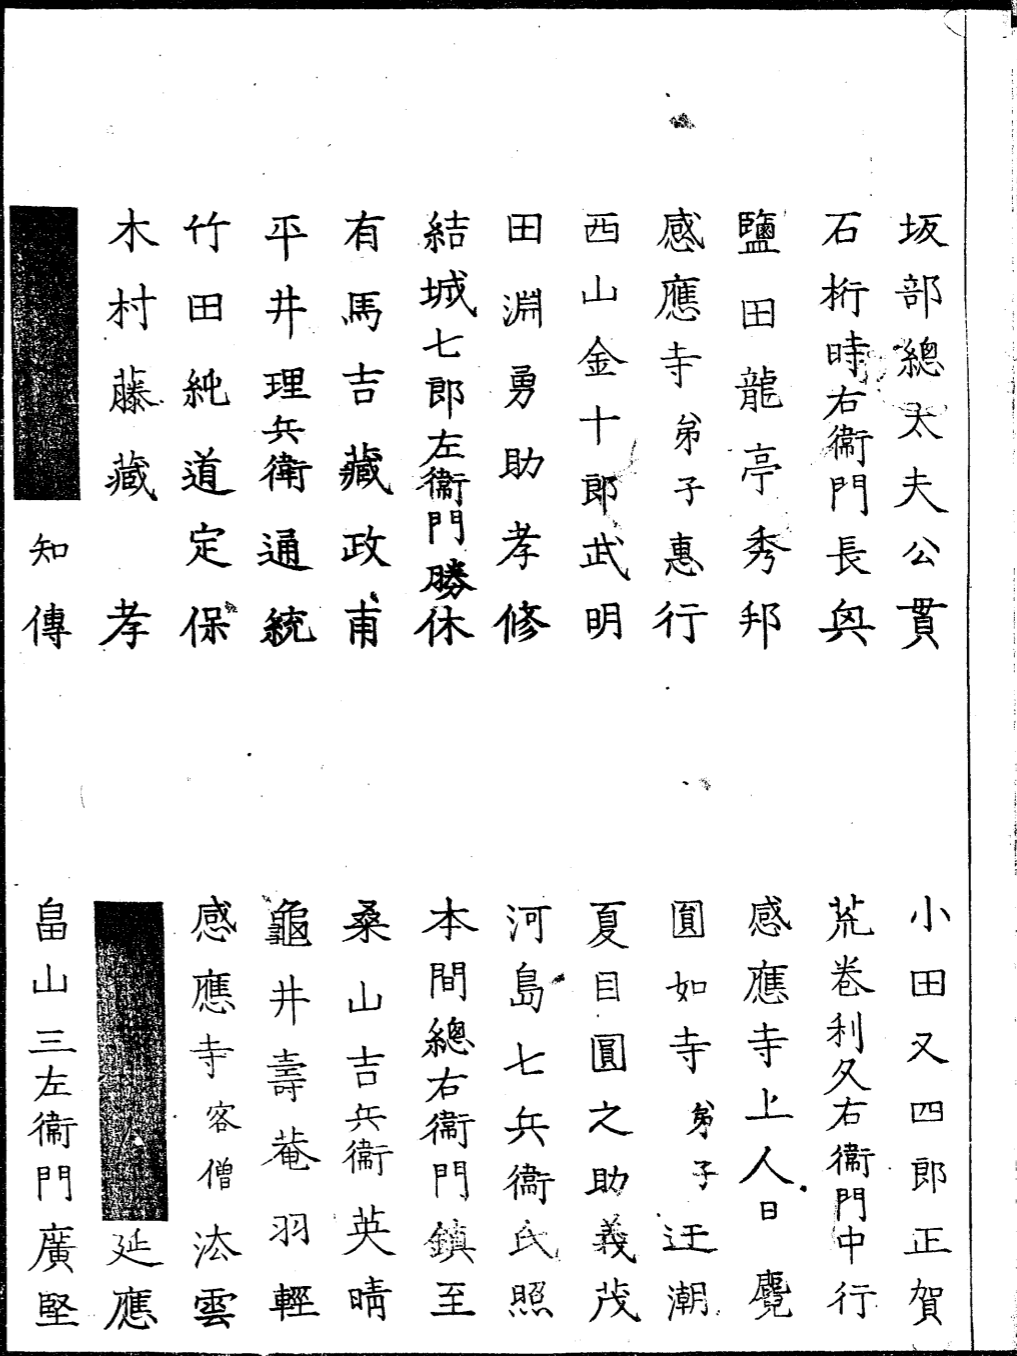 坂部總太夫公貫
石桁時右衞門長㒵
鹽田龍亭秀邦
感應寺弟子惠行
西山金十郎武明
田淵勇助孝修
結城七郎左衞門勝休
有馬吉藏政甫
平井理兵衛通統
竹田純道定保
木村藤藏孝
知傳
小田又四郎正賀
荒卷利久右衞門中行
感應寺上人日
圓如寺弟子迋潮
夏目圓之助義茂
河島七兵衞氏照
本間總右衞門鎮至
桑山吉兵衞英晴
龜井壽菴羽輕
感應寺客僧法雲
延應
畠山三左衞門廣堅